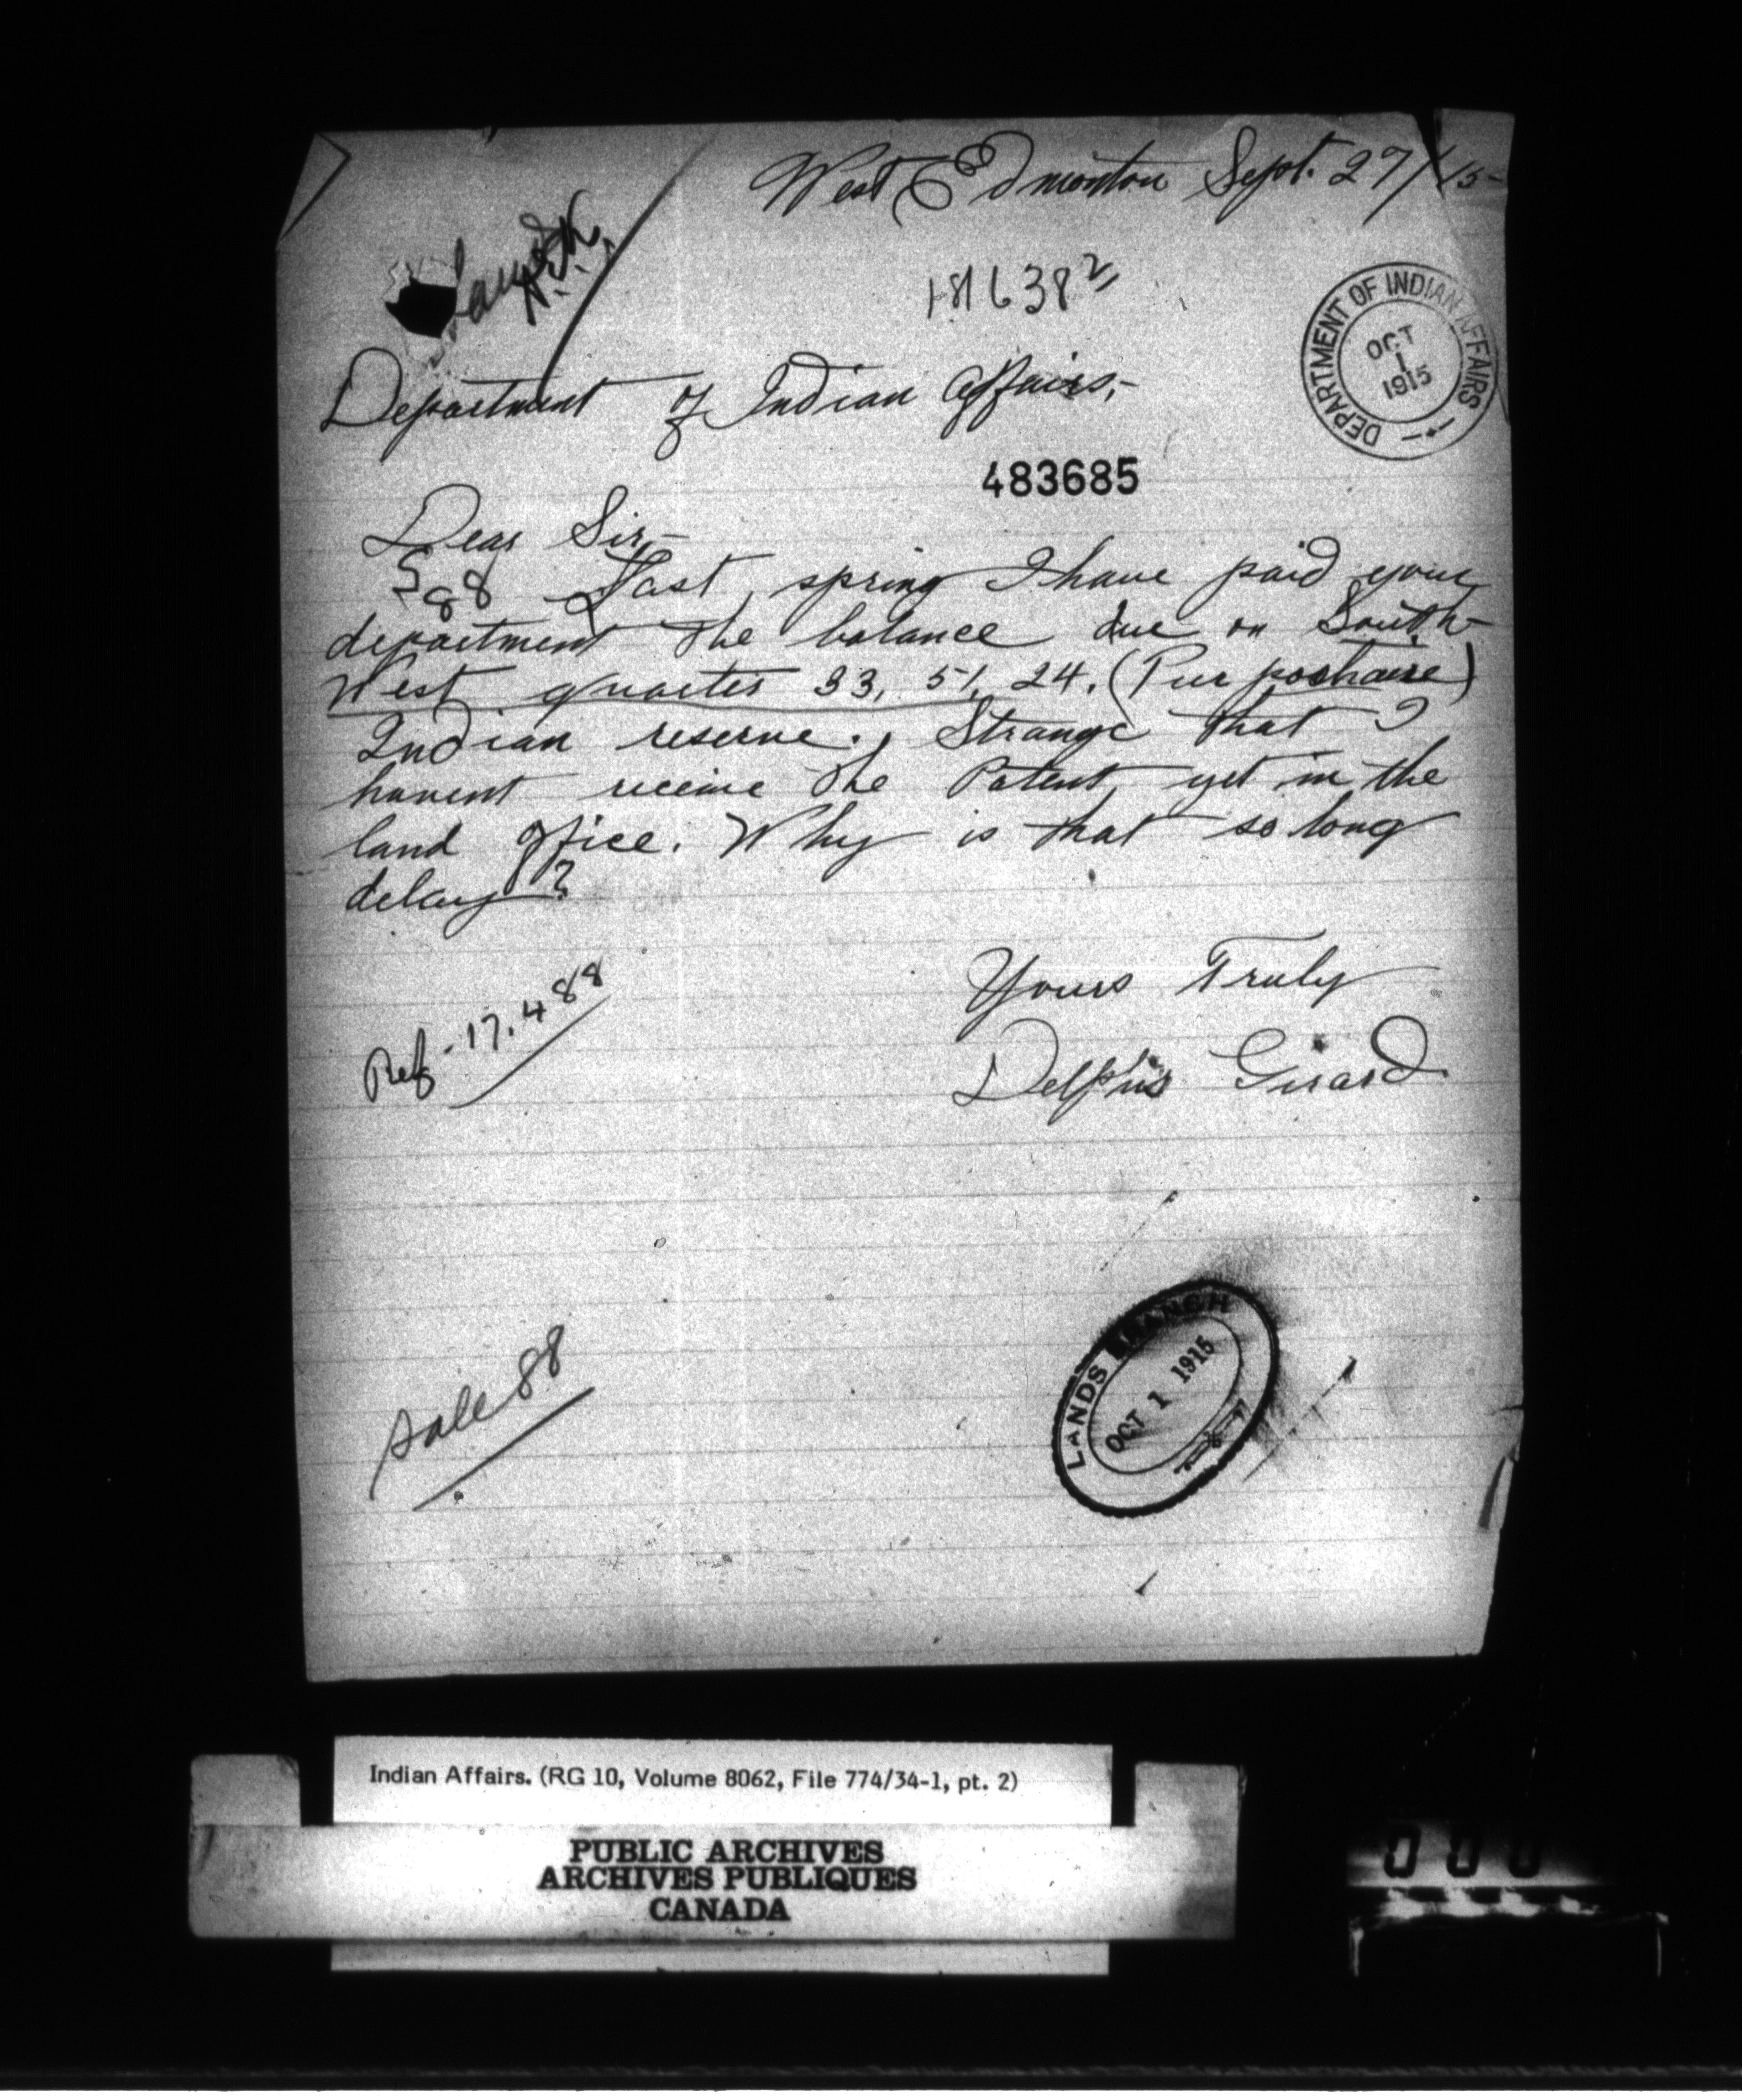 West Edmonton Sept. 27/15-
N.S.K.
181638²
DEPARTMENT OF INDIAN AFFAIRS
OCT
1
1915
Department of Indian Affairs,-
483685
Dear Sir,-
S 88 Last spring I have paid your
department the balance due on South-
West quarter 33, 51, 24. (Pur pochase)
Indian reserve. Strange that I
havent receive the Patent yet in the
land office. Why is that so long
delay?
Yours Truly
Delphis Girard
Ref - 17.488
Sale 88
LANDS BRANCH
OCT 1 1915
Indian Affairs. (RG 10, Volume 8062, File 774/34-1, pt. 2)
PUBLIC ARCHIVES
ARCHIVES PUBLIQUES
CANADA
000